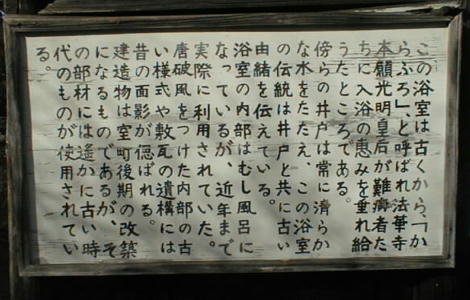 この浴室は古くから、「か
らぶろ」、と呼ばれ法華寺
本願光明皇后が難病者た
ちに入浴の恵みを垂れ給
うたところである。
傍らの井戸は常に清らか
な水をたたえ、この浴室
の伝統は井戸と共に古い
由緒を伝えている。
浴室の内部はむし風呂に
なっているが、近年まで
実際に利用されていた。
唐破風をつけた内部の古
い様式や敷瓦の遺構には
昔の面影が偲ばれる。
建造物は室町後期の改築
になるものであるが、そ
の部材には遥かに古い時
代のものが使用されてい
る。